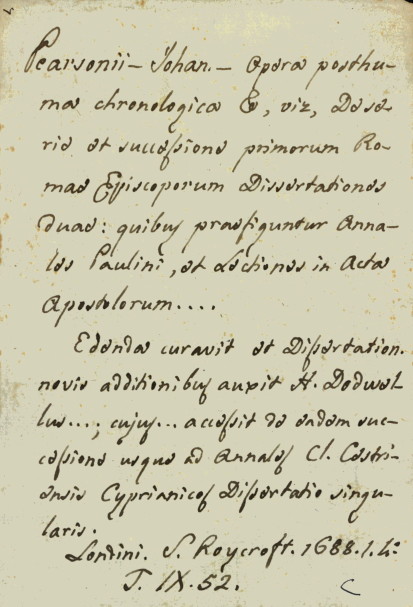 Pearsonii - Johan. - Opera posthu-
ma chronologica &, viz, De se-
rie et successione primorum Ro-
mae Episcoporum Dissertationes
duae: quibus praefiguntur Anna-
les Paulini, et Lectiones in Acta
Apostolorum....
Edenda curavit et Dissertation.
novis additionibus auxit H. Dodwel-
lus...; cujus... accessit de eadem suc-
cessione usque ad Annales Cl. Cestri-
ensis Cyprianicos Dissertatio singu-
laris.
Londini. S. Roycroft. 1688. 1. 4:º
T. IX. 52.